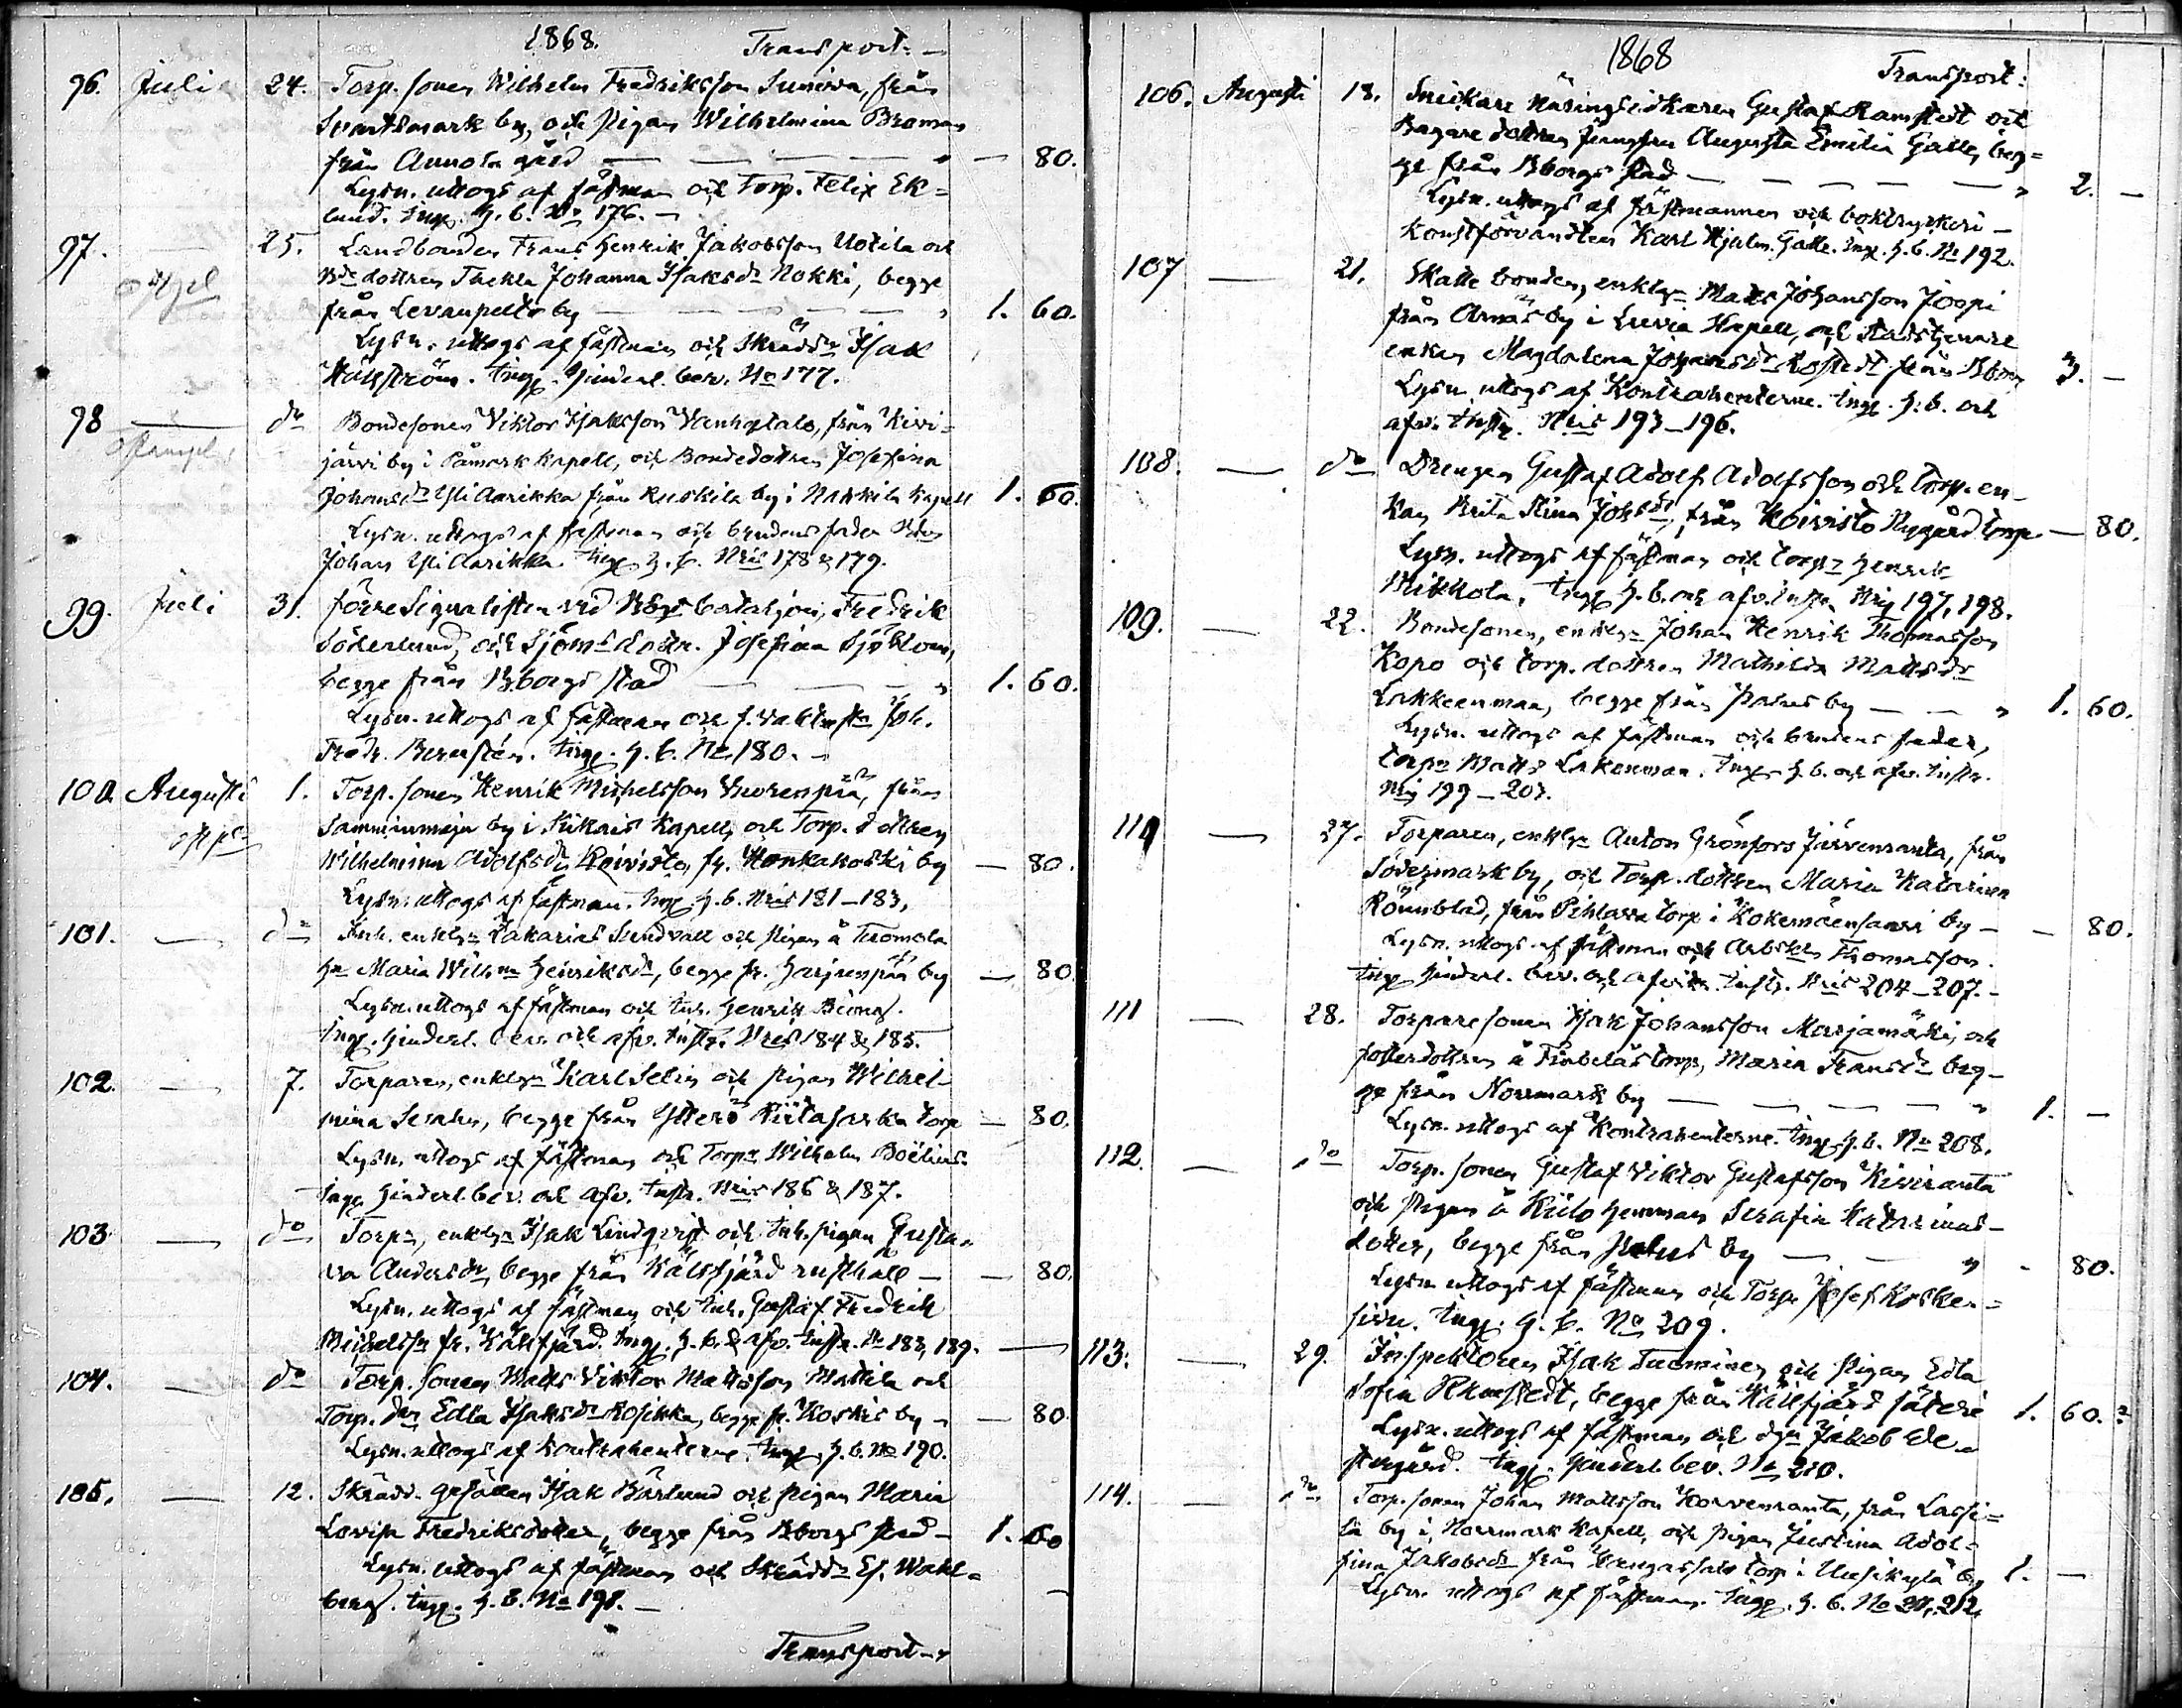 1868. Transport. —
96. Juli 24. Torp. sonen Wilhelm Fredriksson Suniva, från
Svartsmark by, och pigan Wilhelmina Broman
från Annola gård — — — — " — 80.
Lysn. uttogs af fästman och Torp. Felix Ek=
lund. Ingg. H. b. No 176. —
97. — 25. Landbonden Frans Henrik Jakobsson Uotila och
Bde dottren Thekla Johanna Isaksdr Nokki, begge
från Levanpelto by — — — — " 1. 60.
Lysn. uttogs af fästman och Skräddn Isak
Hällström. Ingg. Hinderl. bev. No 177.
98 — do Bondesonen Viktor Isaksson Vanhatalo, från Kivi=
Stämpel
järvi by i Påmark Kapell, och Bondedottren Josefina
Johansdr Yli Aarikka från Ruskila by i Nakkila Kapell 1. 60.
Lysn. uttogs af fästman och brudens fader
Johan Yli Aarikka. Ingg H. b. Nris 178 & 179.
99. Juli 31. förre Signalisten vid Bbgs bataljon, Fredrik
Söderlund, och Sjömsdottr. Josefina Sjöblom,
begge från Bborgs stad — — — " 1. 60.
Lysn. uttogs af fästman och f. vaktmstr Joh.
Fredr. Bernstén. Ingg. H. b. No 180. —
100. Augusti 1. Torp. sonen Henrik Michelsson Vuorenpää, från
Samminmaja by i Kapell, och Torp. dottren
Wilhelmina Adolfsdr Koivisto, fr. Honkakoski by — 80.
Lysn. uttogs af fästman. Ingg H. b. Nris 181–183.
101. — do Inh. enkl. Zakarias Sundvall och pigan å Tuomola
Hn Maria Wilhma Henriksdr, begge fr. Harjunpää by — 80.
Lysn. uttogs af fästman och Inh. Henrik Björn.
Ingg. Hinderl. bev. och afv. Nris 184 & 185.
102. — 7. Torparen, enkl. Karl Selin och pigan Wilhel=
mina, begge från Ytterö torp — 80.
Lysn. uttogs af fästman och Torpn Wilhelm Boëlius.
Ingg Hinderl. bev. och afv. Nris 186 & 187.
103. — do Torpn, enkl. Isak Lindqvist och Inh. pigan Gusta=
va Andersdr, begge från Kälfjärd rusthåll — — 80.
Lysn. uttogs af fästman och Inh. Gustaf Fredrik
Michelsson fr. Kälfjärd. Ingg. H. b. & afv. No 188, 189. —
104. — do Torp. sonen Matts Viktor Mattsson Mattila och
Torp. dn Edla Isaksdr Kosikka, begge fr. Koskis by — — 80.
Lysn. uttogs af kontrahenterne. Ingg. H. b. No 190.
105. — 12. Skrädd. gesällen Isak Bärlund och pigan Maria
Lovisa Fredriksdotter, begge från Bborgs stad — 1. 60
Lysn. uttogs af fästman och Skräddn Ef. Wahl=
berg. Ingg. H. b. No 191. —
Transport —
1868 Transport:
106. Augusti 18. Snickare näringsidkaren Gustaf Ramstedt och
Bagare dottren Jungfru Augusta Emilia Galle, beg=
ge från Bborgs stad — — — — " 2. —
Lysn. uttogs af fästmannen och boktryckeri —
Konstförvandten Karl Hjalm. Galle. Ingg. H. b. No 192.
107 — 21. Skatte bonden, enkl. Matts Johansson Joopi
från Arnäs by i Luvia Kapell, och
enkan Magdalena Johansdr från Bborg 3. —
Lysn. uttogs af Kontrahenterne. Ingg. H. b. och
afv. Nris 193–196.
108. — do Drengen Gustaf Adolf Adolfsson och torp. en=
kan Brita Stina Johsdr, från Koivisto Nygård torp — 80.
Lysn. uttogs af fästman och torpn Henrik
Mikkola. Ingg H. b. och afv. 197, 198.
109. — 22. Bondesonen, enkl. Johan Henrik Thomasson
Kopo och torp. dottren Mathilda Mattsdr
Lakkeenmaa, begge från by — — " 1. 60.
Lysn. uttogs af fästman och brudens fader,
torpn Matts Lakenmaa. Ingg H. b. och afv.
Nris 199–203.
110 — 27. Torparen, enkl. Anton Grönfors Järvenranta, från
Södermark by, och Torp. dottren Maria Katarina
Rönnblad, från Pihlava torp i Kokemäensaari by — — 80.
Lysn. uttogs af fästman och Thomasson.
Ingg Hinderl. bev. och Nris 204–207. —
111 — 28. Torparesonen Isak Johansson Marjamäki, och
fosterdottren å torp, Maria Fransdr beg=
ge från Norrmark by — — — — " 1. —
Lysn. uttogs af Kontrahenterne. Ingg. H. b. No 208.
112. — do Torp. sonen Gustaf Viktor Gustafsson Kiviranta
och Pigan å hemman Serafia Katarinas=
dotter, begge från by — — " - 80.
Lysn. uttogs af fästman och Torpn Josef Kosken=
. Ingg. H. b. No 209.
113. — 29. Inspektoren Isak Tuominen och pigan Edla
Sofia Ramstedt, begge från Källfjärd säteri 1. 60.
Lysn. uttogs af fästman och Jakob
. Ingg. Hinderl. bev. No 210.
114. — do Torp. sonen Johan Mattsson Korvenranta, från Lassi=
la by i Norrmark Kapell, och pigan Justina Adol=
fina Jakobsdr från torp i Uusikylä by 1. —
Lysn. uttogs af fästman. Ingg. H. b. No 211, 212.